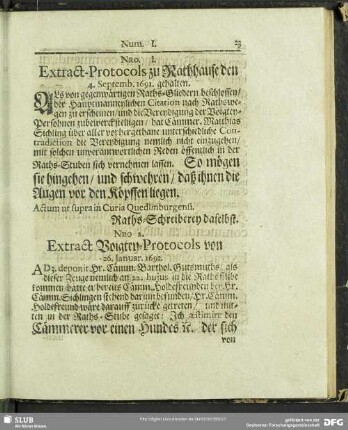 Num. I. 23
Nro. I.
Extract-Protocols zu Rathhause den
4. Septemb. 1691. gehalten.
ALs von gegenwärtigen Raths-Gliedern beschlossen/
der Hauptmanneylichen Citation nach Rathswe-
gen zu erscheinen/ und die Vereydigung der Voigtey-
Persohnen zubewerckstelligen/ hat Cämmer. Matthias
Sichling über aller vorhergethane unterschiedliche Con-
tradiction die Vereydigung nemlich nicht einzugehen/
mit solchen unverantwortlichen Reden öffentlich in der
Raths-Stuben sich vernehmen lassen. So mögen
sie hingehen/ und schwehren/ daß ihnen die
Augen vor den Köpffen liegen.
Actum ut supra in Curia Quedlinburgensi.
Raths-Schreiberey daselbst.
Nro 2.
Extract Voigtey-Protocols von
26. Januar. 1692.
AD 3. deponit Hr. Cämm. Barthol. Gutsmuths: als
dieser Zeuge nemlich am 22. hujus in die Raths-Stube
kommen/ hätte er bereits Cämm. Holdefreunden bey Hr.
Cämm. Sichlingen stehend darinn befunden/ Hr. Cämm.
Holdefreund wäre darauff zurücke getreten/ und mit-
ten in der Raths-Stube gesaget: Ich æstimire den
Cämmerer vor einen Hundes ꝛc. der sich
von
SLUB
Wir führen Wissen.
gefördert von der
Deutschen Forschungsgemeinschaft
DFG